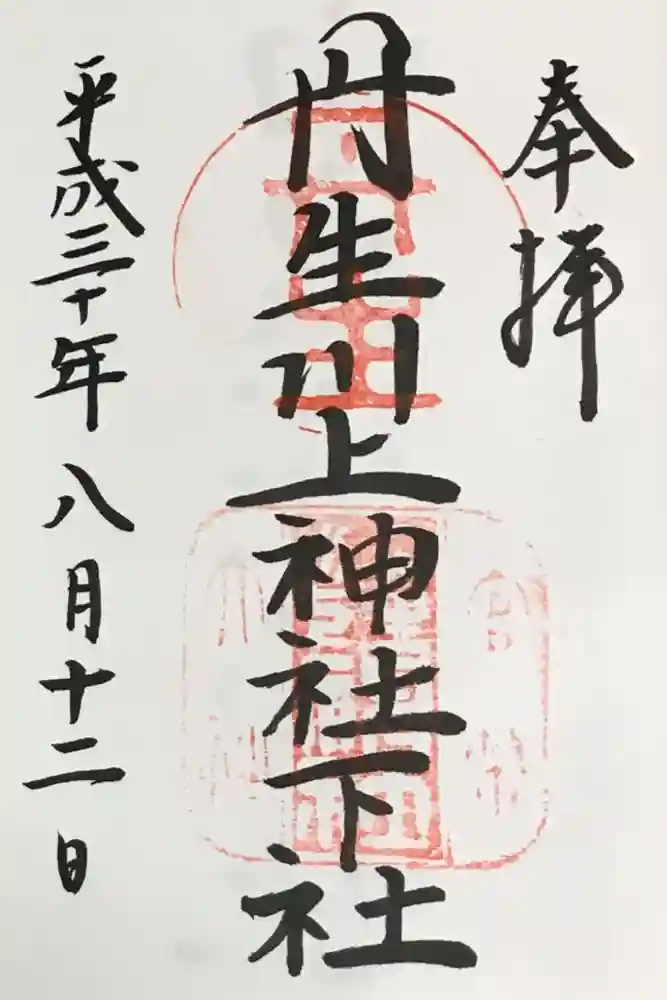 奉拝
丹生川上神社下社
平成三十年八月十二日
官幣
大社